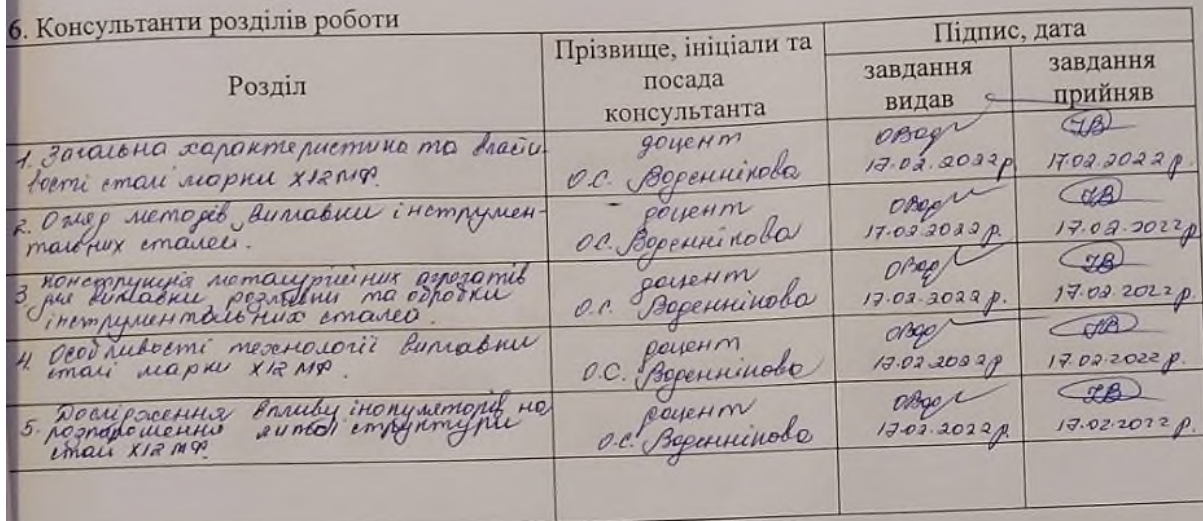 6. Консультанти розділів роботи
Розділ
Прізвище, ініціали та
посада
консультанта
Підпис, дата
завдання
видав
завдання
прийняв
1. Загальна характеристика та власти-
вості сталі марки Х12МФ.
доцент
О.С. Воденнікова
17.02.2022р.
17.02.2022р.
2. Огляд методів виплавки інструмен-
тальних сталей.
доцент
О.С. Воденнікова
17.02.2022р.
17.02.2022р.
3. Конструкція металургійних агрегатів
для виплавки, розливки та обробки
інструментальних сталей.
доцент
О.С. Воденнікова
17.02.2022р.
17.02.2022р.
4. Особливості технології виплавки
сталі марки Х12МФ.
доцент
О.С. Воденнікова
17.02.2022р
17.02.2022р.
5. Дослідження впливу інокуляторів на
литої структури
сталі Х12МФ.
доцент
О.С. Воденнікова
17.02.2022р.
17.02.2022р.